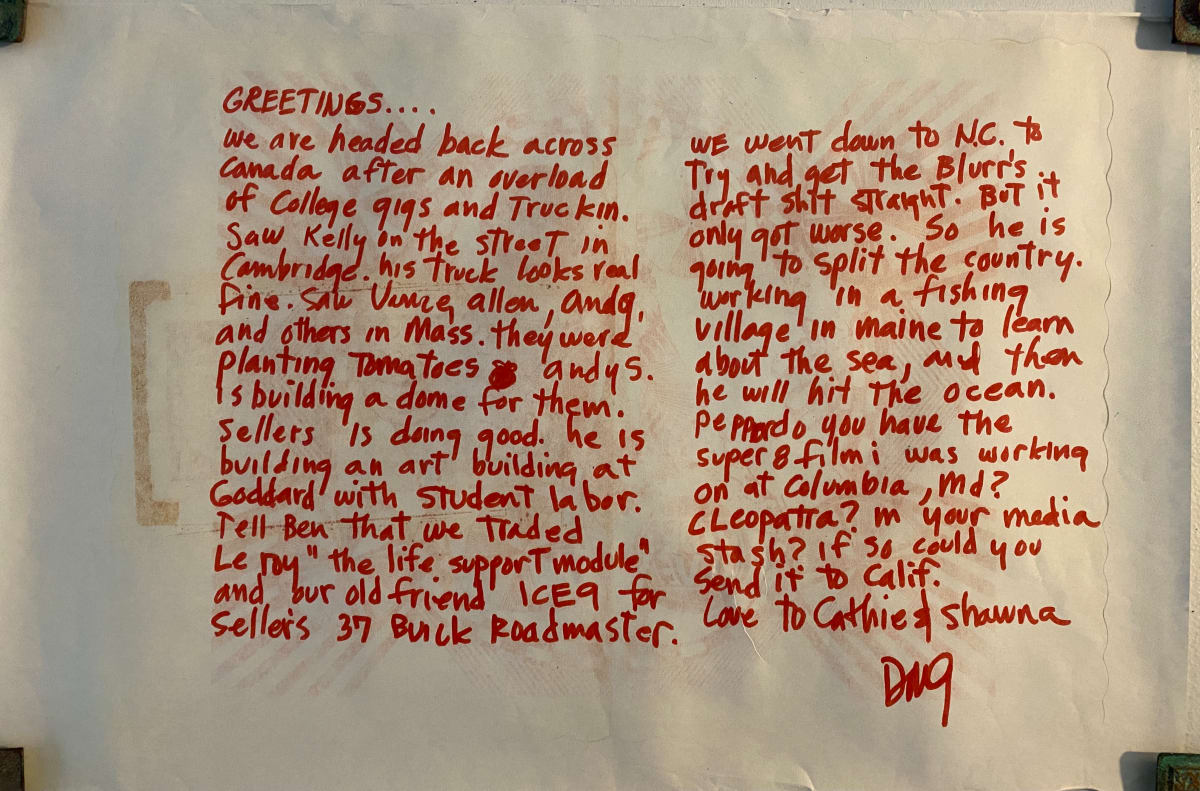 GREETINGS....
we are headed back across
Canada after an overload
of College gigs and Truckin.
Saw Kelly on the street in
Cambridge. his truck looks real
fine. Saw Vince, allen, andy,
and others in Mass. they were
planting Tomatoes andy S.
Is building a dome for them.
Sellers is doing good. he is
building an art building at
Goddard with student labor.
Tell Ben that we traded
Le roy "the life support module"
and our old friend ICE9 for
Sellers 37 Buick Roadmaster.
WE went down to N.C. to
Try and get the Blurr's
draft shit straight. BUT it
only got worse. So he is
going to split the country.
working in a fishing
village in maine to learn
about the sea, and then
he will hit the ocean.
Peppard do you have the
super 8 film i was working
on at Columbia, Md?
CLeopatra? in your media
stash? if so could you
Send it to Calif.
Love to Cathie & Shawna